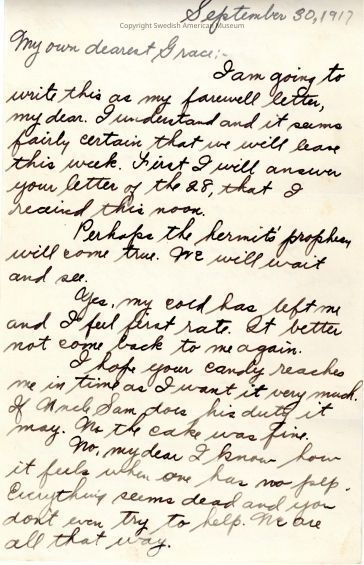 September 30, 1917
Copyright Swedish American Museum
My own dearest Grace:-
I am going to
write this as my farewell letter,
my dear. I understand and it seems
fairly certain that we will leave
this week. First I will answer
your letter of the 28, that I
received this noon.
Perhaps the hermit's prophesy
will come true. We will wait
and see.
Yes, my cold has left me
and I feel first rate. It better
not come back to me again.
I hope your candy reaches
me in time as I want it very much.
If Uncle Sam does his duty it
may. No the cake was fine.
No, my dear I know how
it feels when one has no pep.
Everything seems dead and you
don't even try to help. We are
all that way.